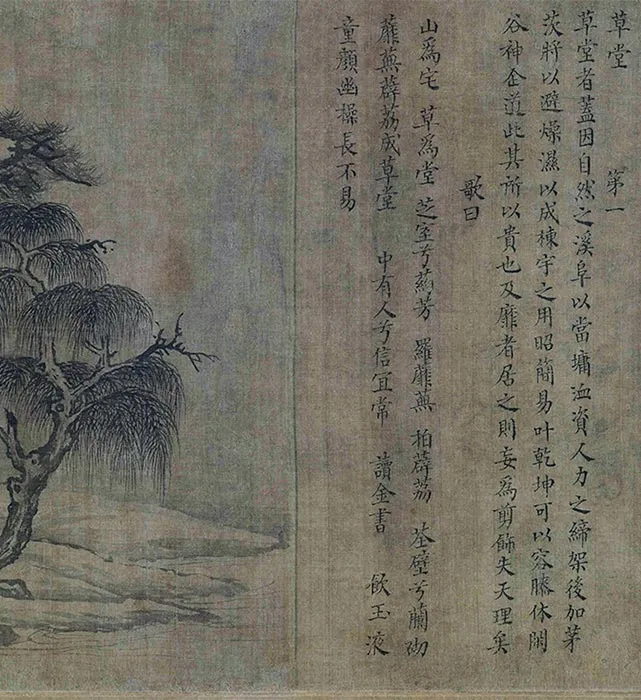 草堂 第一
草堂者蓋因自然之溪阜以當墉洫資人力之締架後加茅
茨將以避燥濕以成棟宇之用昭簡易叶乾坤可以容膝休閑
谷神全道此其所以貴也及靡者居之則妄為剪飾失天理矣
歌曰
山為宅 草為堂 芝室兮葯芳 羅蘼蕪 拍薜荔 荃壁兮蘭砌
蘼蕪薜荔成草堂 中有人兮信宜常 讀金書 飲玉液
童顏幽操長不易